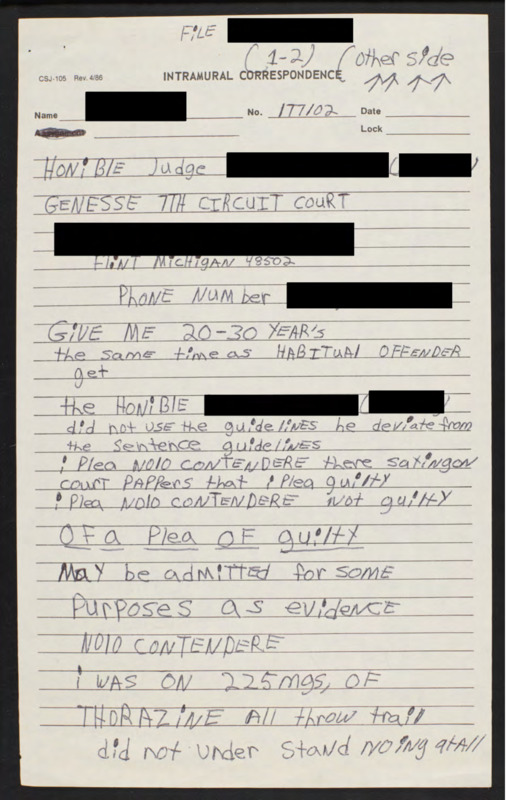 FiLE
(1-2) (other side
CSJ-105 Rev. 4/86 INTRAMURAL CORRESPONDENCE
Name No. 177102 Date
Lock
HONiBlE Judge ( )
GENESSE 7TH CIRCUIT COURT
FliNT MicHiGAN 48502
PHONE NUMber
GiVE ME 20-30 YEAR's
the same time as HABITUAl OFFENDER
get
the HONiBlE ( )
did not USE the guidelines he deviate from
the Sentence guidelines
i Plea NOlO CONTENDERE there sating on
court PAPpers that i Plea guilty
i Plea NOlO CONTENDERE not guilty
OF a Plea OF guilty
MaY be admitted for SOME
Purposes as evidence
NOlO CONTENDERE
i WAS ON 225mgs, OF
THORAZINE All throw trail
did not under stand NOing at All